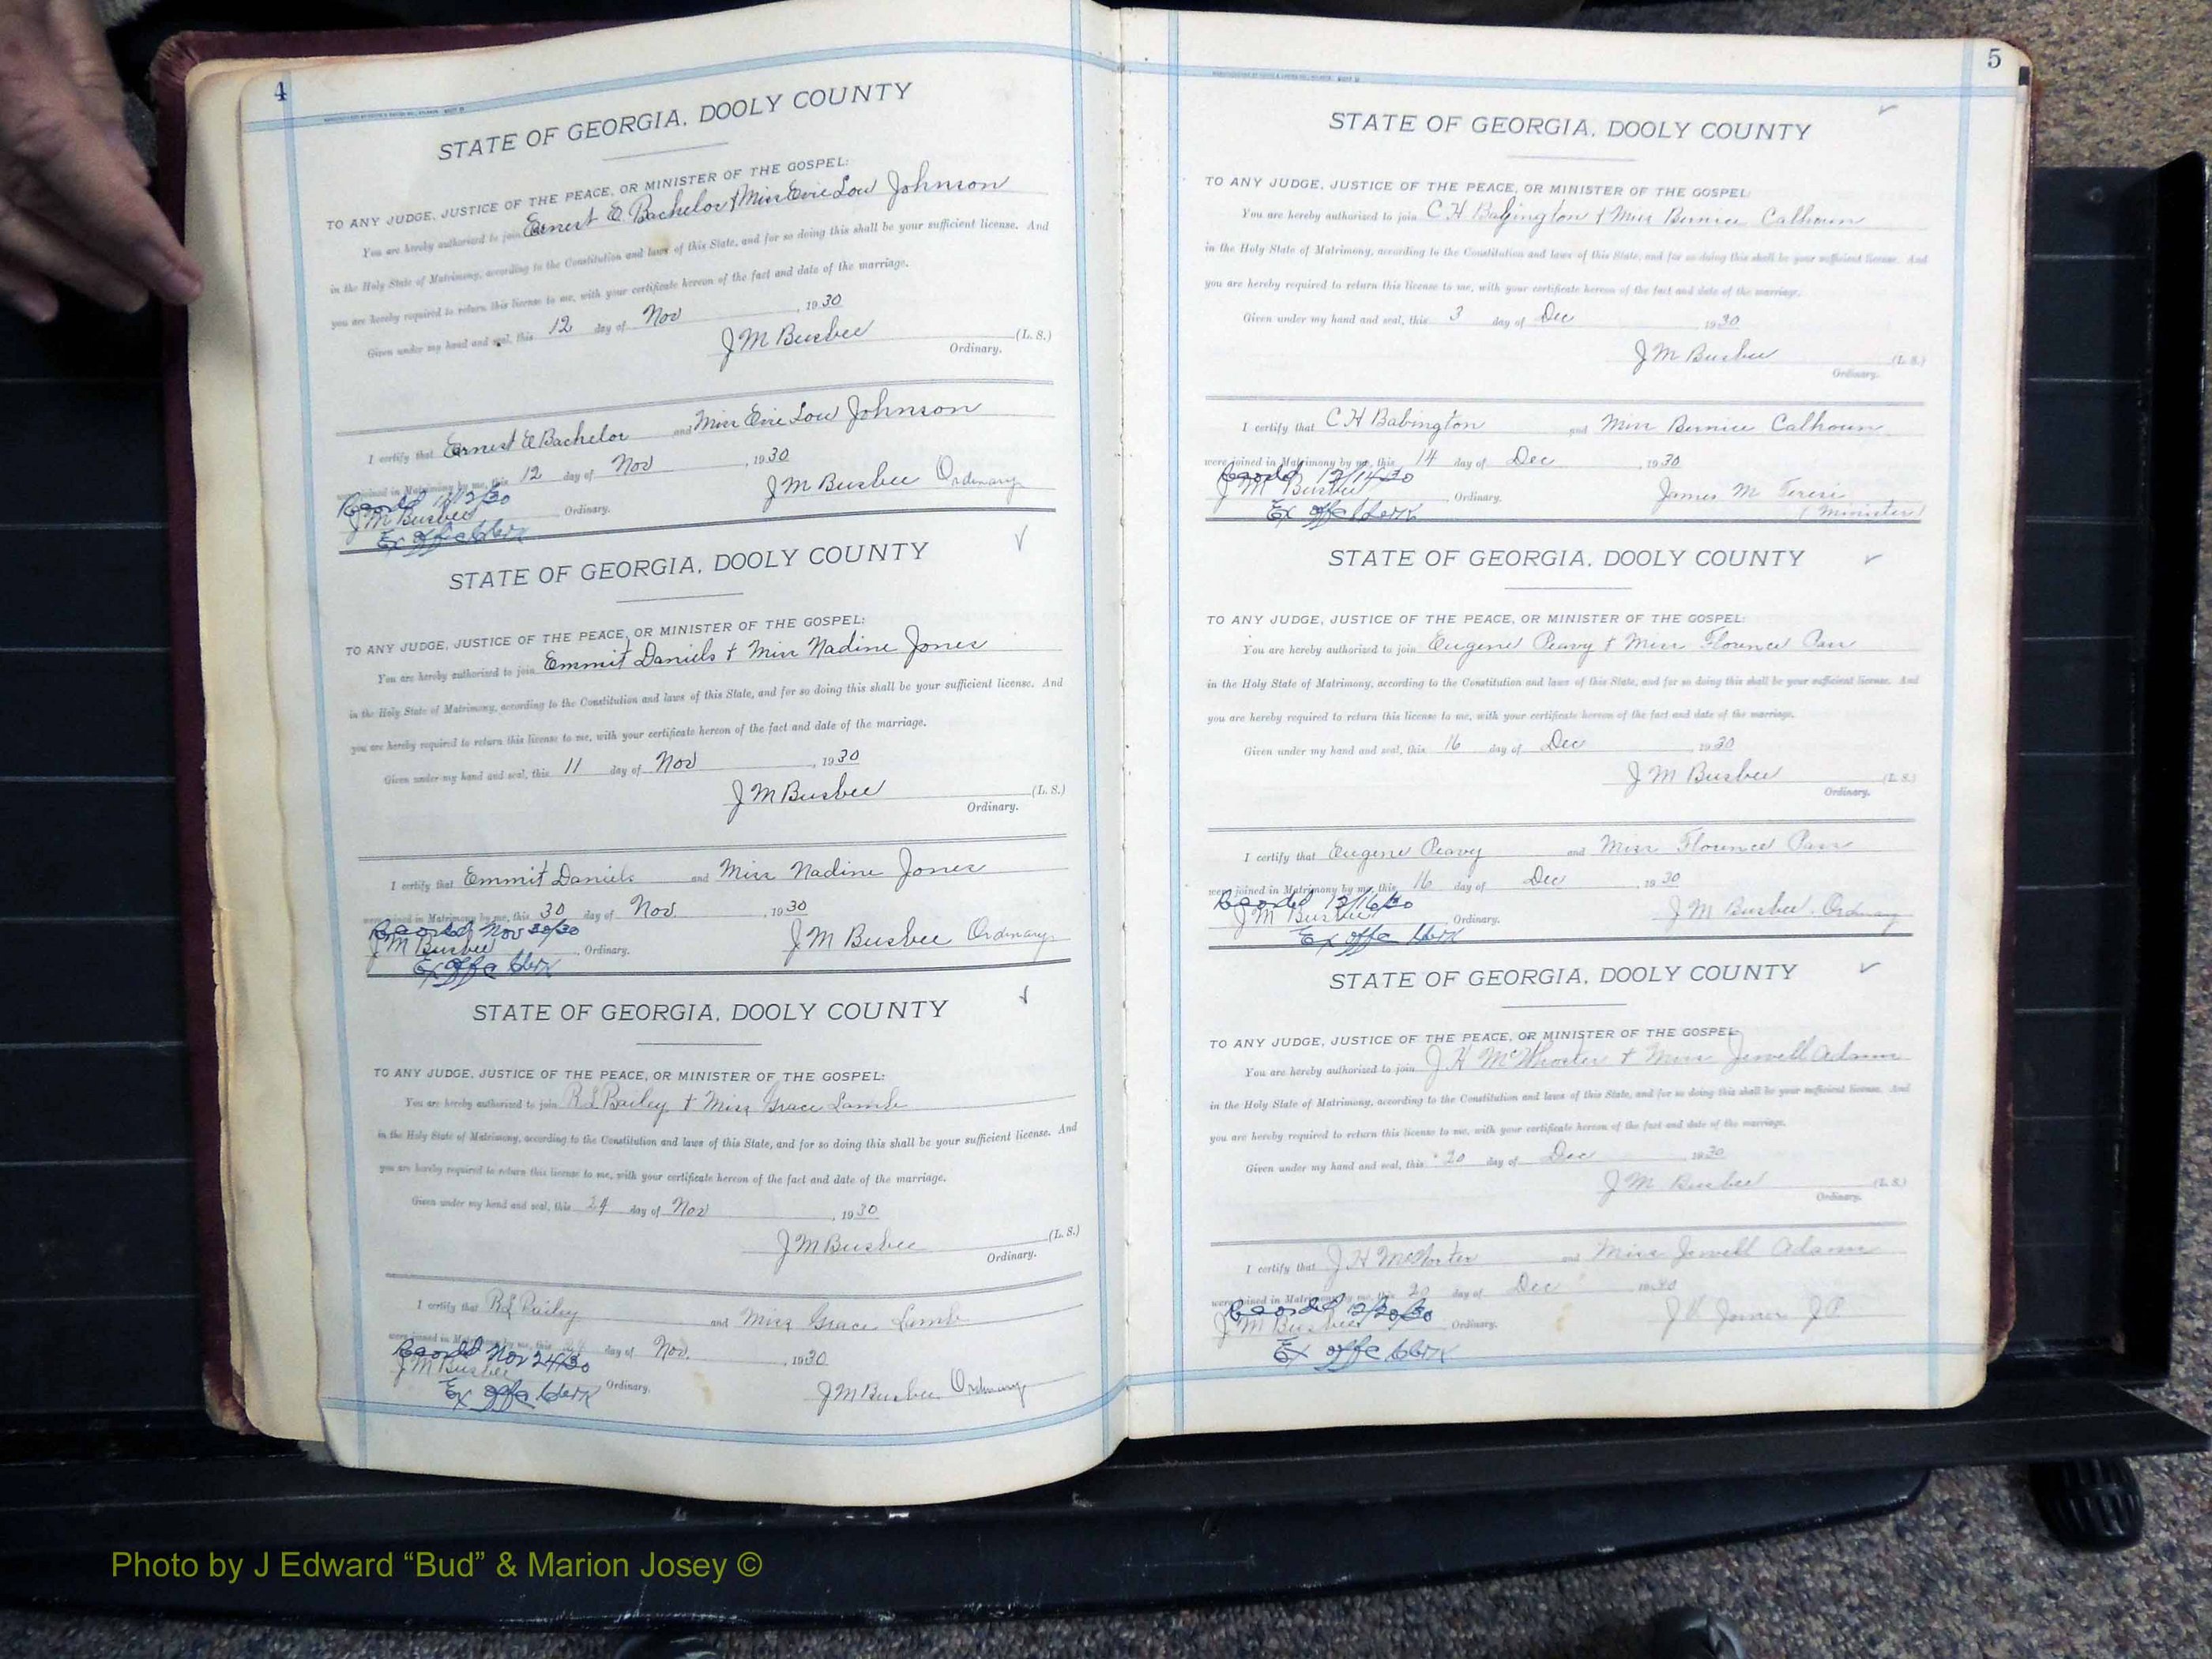 4
STATE OF GEORGIA, DOOLY COUNTY
TO ANY JUDGE, JUSTICE OF THE PEACE, OR MINISTER OF THE GOSPEL:
You are hereby authorized to join Ernest E. Bachelor & Miss Evie Lou Johnson
in the Holy State of Matrimony, according to the Constitution and laws of this State, and for so doing this shall be your sufficient license. And
you are hereby required to return this license to me, with your certificate hereon of the fact and date of the marriage.
Given under my hand and seal, this 12 day of Nov, 1930
J M Busbee (L. S.)
Ordinary.
I certify that Ernest E Bachelor and Miss Evie Lou Johnson
were joined in Matrimony by me, this 12 day of Nov, 1930
Record 11/12/30
J M Busbee Ordinary
J M Busbee Ordinary.
Ex Offc Clerk
STATE OF GEORGIA, DOOLY COUNTY
TO ANY JUDGE, JUSTICE OF THE PEACE, OR MINISTER OF THE GOSPEL:
You are hereby authorized to join Emmit Daniels & Miss Nadine Jones
in the Holy State of Matrimony, according to the Constitution and laws of this State, and for so doing this shall be your sufficient license. And
you are hereby required to return this license to me, with your certificate hereon of the fact and date of the marriage.
Given under my hand and seal, this 11 day of Nov, 1930
J M Busbee (L. S.)
Ordinary.
I certify that Emmit Daniels and Miss Nadine Jones
were joined in Matrimony by me, this 30 day of Nov., 1930
Recorded Nov 30/30
J M Busbee Ordinary.
J M Busbee Ordinary.
Ex Offc Clerk
STATE OF GEORGIA, DOOLY COUNTY
TO ANY JUDGE, JUSTICE OF THE PEACE, OR MINISTER OF THE GOSPEL:
You are hereby authorized to join R L Bailey & Miss Grace Lamb
in the Holy State of Matrimony, according to the Constitution and laws of this State, and for so doing this shall be your sufficient license. And
you are hereby required to return this license to me, with your certificate hereon of the fact and date of the marriage.
Given under my hand and seal, this 24 day of Nov, 1930
J M Busbee (L. S.)
Ordinary.
I certify that R L Bailey and Miss Grace Lamb
were joined in Matrimony by me, this day of Nov., 1930
Record Nov 24/30
J M Busbee Ordinary.
J M Busbee Ordinary
Ex Offc Clerk
5
STATE OF GEORGIA, DOOLY COUNTY
TO ANY JUDGE, JUSTICE OF THE PEACE, OR MINISTER OF THE GOSPEL:
You are hereby authorized to join C H Babington & Miss Bernice Calhoun
in the Holy State of Matrimony, according to the Constitution and laws of this State, and for so doing this shall be your sufficient license. And
you are hereby required to return this license to me, with your certificate hereon of the fact and date of the marriage.
Given under my hand and seal, this 3 day of Dec 1930
J M Busbee (L. S.)
Ordinary.
I certify that C H Babington and Miss Bernice Calhoun
were joined in Matrimony by me, this 14 day of Dec, 1930
Record 12/14/30
J M Busbee Ordinary.
James M
(Minister)
Ex Offc Clerk
STATE OF GEORGIA, DOOLY COUNTY
TO ANY JUDGE, JUSTICE OF THE PEACE, OR MINISTER OF THE GOSPEL:
You are hereby authorized to join Eugene Peavy & Miss Florence Parr
in the Holy State of Matrimony, according to the Constitution and laws of this State, and for so doing this shall be your sufficient license. And
you are hereby required to return this license to me, with your certificate hereon of the fact and date of the marriage.
Given under my hand and seal, this 16 day of Dec, 1930
J M Busbee (L. S.)
Ordinary.
I certify that Eugene Peavy and Miss Florence Parr
were joined in Matrimony by me, this 16 day of Dec, 1930
Recorded 12/16/30
J M Busbee Ordinary.
J M Busbee, Ordinary
Ex Offc Clerk
STATE OF GEORGIA, DOOLY COUNTY
TO ANY JUDGE, JUSTICE OF THE PEACE, OR MINISTER OF THE GOSPEL:
You are hereby authorized to join J H McWhorter & Miss Jewell Adams
in the Holy State of Matrimony, according to the Constitution and laws of this State, and for so doing this shall be your sufficient license. And
you are hereby required to return this license to me, with your certificate hereon of the fact and date of the marriage.
Given under my hand and seal, this 20 day of Dec 1930
J M Busbee (L. S.)
Ordinary.
I certify that J H McWhorter and Miss Jewell Adams
were joined in Matrimony by me, this 20 day of Dec 1930
Recorded 12/20/30
J M Busbee Ordinary.
Joiner J P
Ex Offc Clerk
Photo by J Edward “Bud” & Marion Josey ©